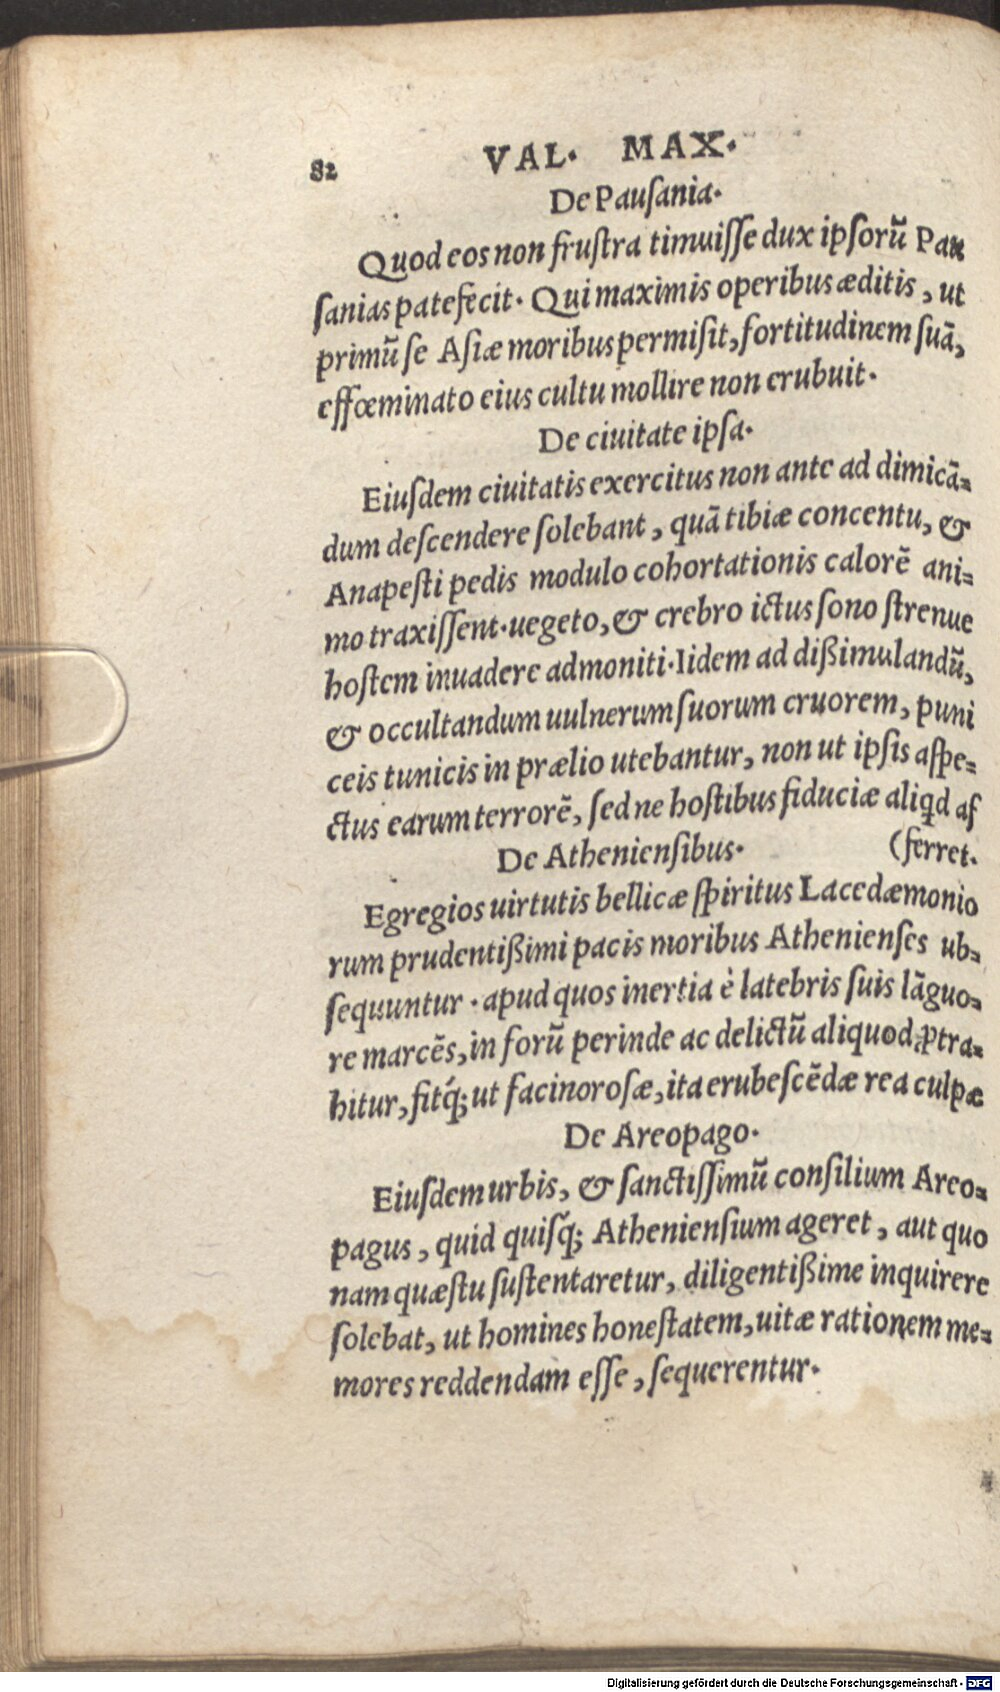 82 VAL. MAX.
De Pauſania.
Quod eos non fruſtra timuiſſe dux ipſorũ Pau
ſanias patefecit. Qui maximis operibus æditis, ut
primũ ſe Aſiæ moribus permiſit, fortitudinem ſuã,
effœminato eius cultu mollire non erubuit.
De ciuitate ipſa.
Eiuſdem ciuitatis exercitus non ante ad dimicã=
dum deſcendere ſolebant, quã tibiæ concentu, &
Anapeſti pedis modulo cohortationis calorẽ ani=
mo traxiſſent. uegeto, & crebro ictus ſono ſtrenue
hoſtem inuadere admoniti. Iidem ad dißimulandũ,
& occultandum uulnerum ſuorum cruorem, puni
ceis tunicis in prælio utebantur, non ut ipſis aſpe=
ctus earum terrorẽ, ſed ne hoſtibus fiduciæ aliqd af
De Athenienſibus. (ferret.
Egregios uirtutis bellicæ ſpiritus Lacedæmonio
rum prudentißimi pacis moribus Athenienſes ub=
ſequuntur. apud quos inertia è latebris ſuis lãguo=
re marcẽs, in forũ perinde ac delictũ aliquod ꝓtra=
hitur, fitq́; ut facinoroſæ, ita erubeſcẽdæ rea culpæ
De Areopago.
Eiuſdem urbis, & ſanctiſſimũ conſilium Areo=
pagus, quid quiſq́; Athenienſium ageret, aut quo
nam quæſtu ſuſtentaretur, diligentißime inquirere
ſolebat, ut homines honeſtatem, uitæ rationem me=
mores reddendam eſſe, ſequerentur.
Digitalisierung gefördert durch die Deutsche Forschungsgemeinschaft - DFG